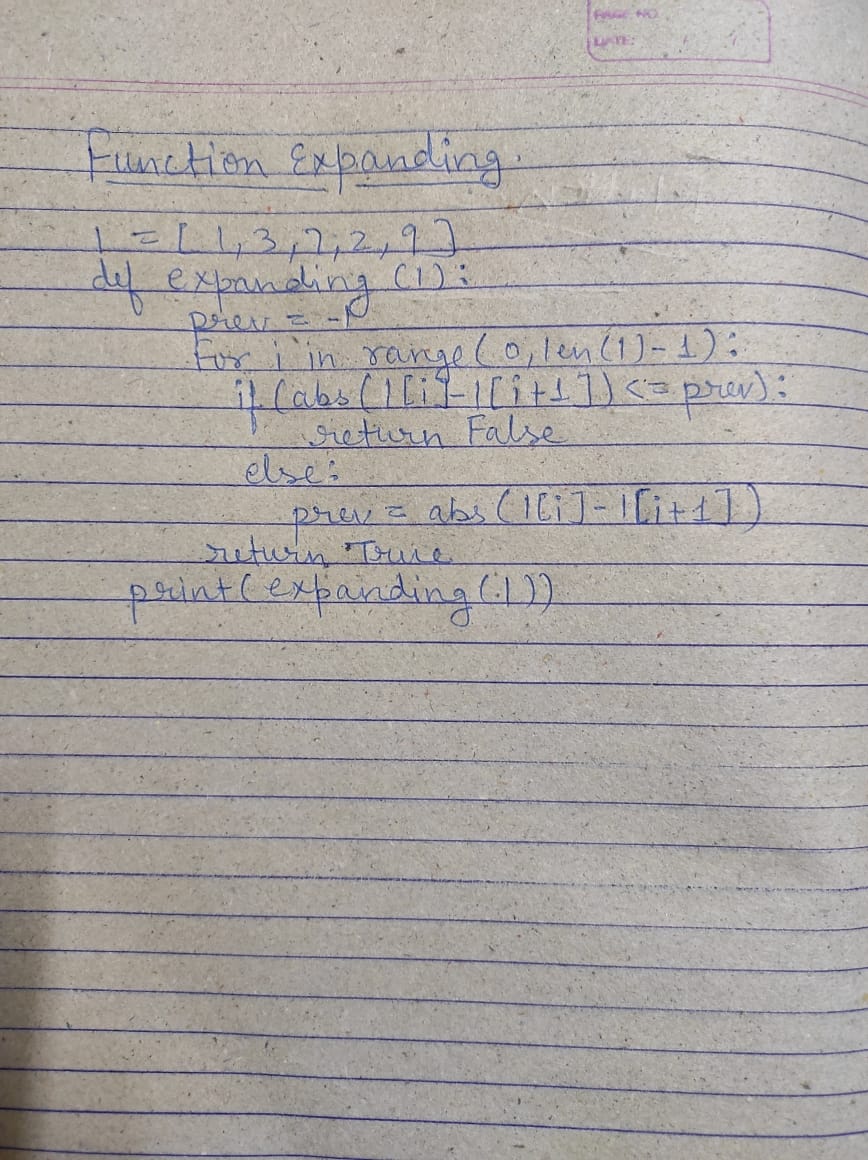 PAGE NO
DATE: / /
Function Expanding.
l = [1,3,7,2,9]
def expanding (l):
prev = -1
for i in range(0,len(l)-1):
if (abs(l[i]-l[i+1])<= prev):
return False
else:
prev = abs(l[i]-l[i+1])
return True
print(expanding(l))